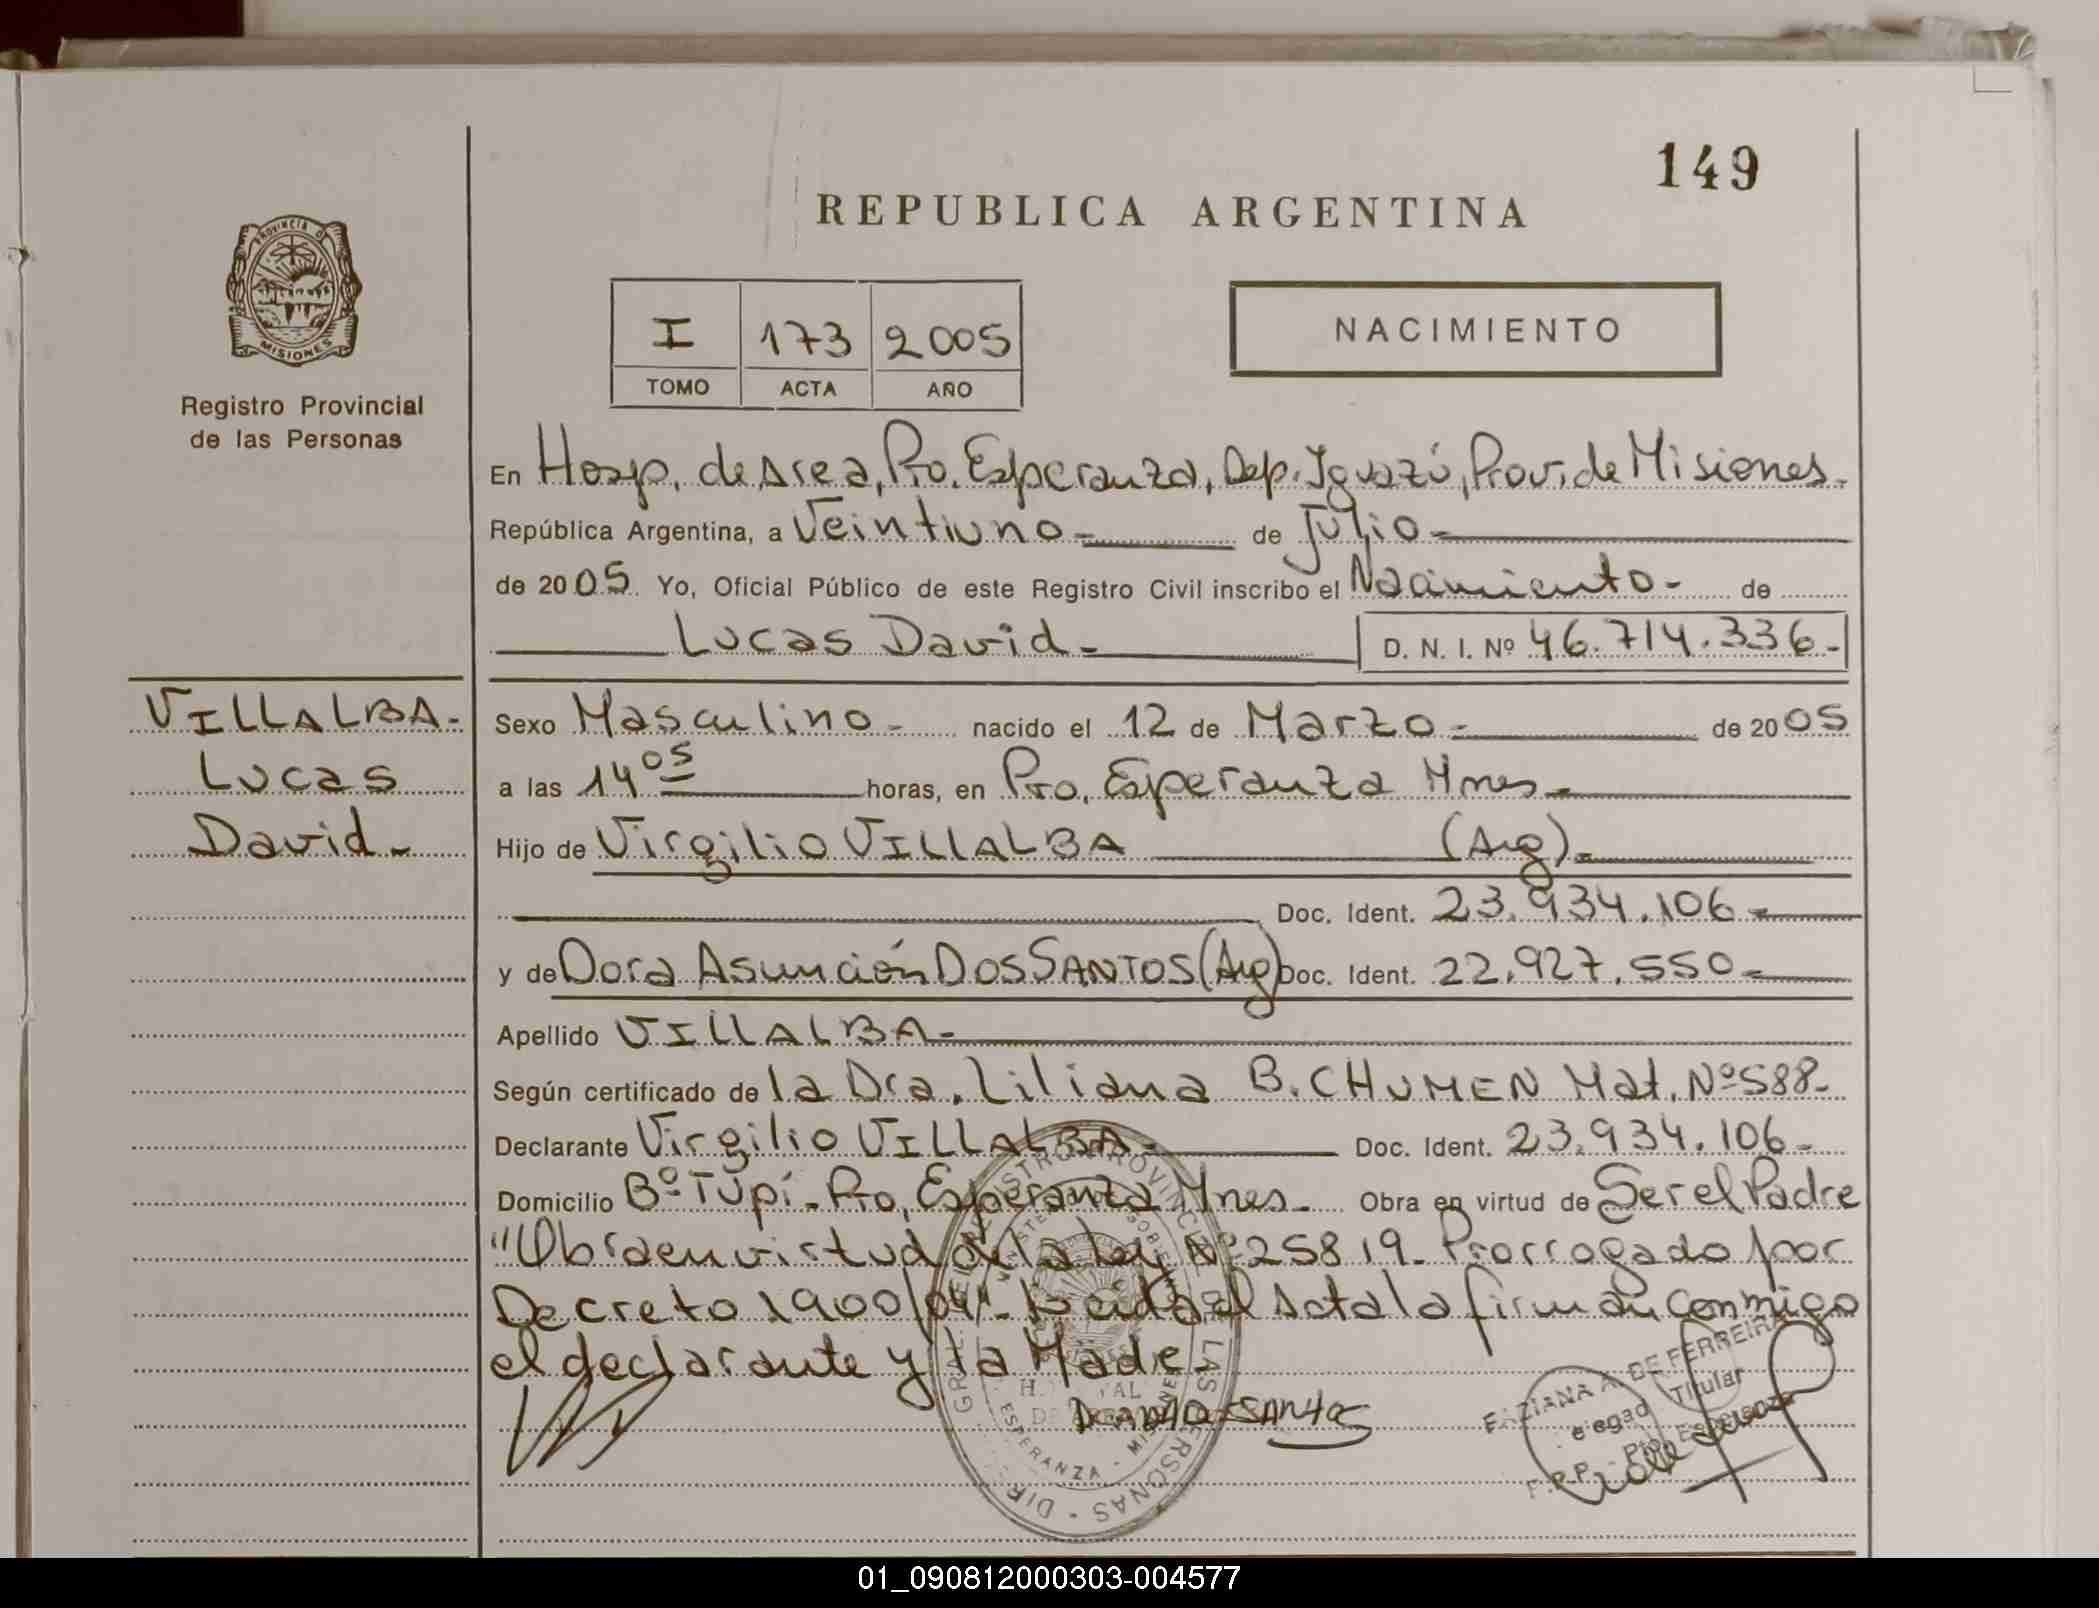 149
REPUBLICA ARGENTINA
PROVINCIA DE
MISIONES
Registro Provincial
de las Personas
I 173 2005
TOMO ACTA AÑO
NACIMIENTO
En Hosp. de Area, Pto. Esperanza, Dep. Iguazú, Prov. de Misiones.
República Argentina, a Veintiuno de Julio
de 2005 Yo, Oficial Público de este Registro Civil inscribo el Nacimiento- de
Lucas David- D. N. I. Nº 46.714.336-
VILLALBA-
Lucas
David-
Sexo Masculino- nacido el 12 de Marzo- de 2005
a las 14 05 horas, en Pto. Esperanza Mnes-
Hijo de Virgilio VILLALBA (Arg)-
Doc. Ident. 23.934.106-
y de Dora Asunción DOS SANTOS (Arg) Doc. Ident. 22.927.550-
Apellido VILLALBA-
Según certificado de la Dra. Liliana B. CHUMEN Mat. Nº 588-
Declarante Virgilio VILLALBA- Doc. Ident. 23.934.106-
Domicilio Bº Tupí- Pto. Esperanza Mnes- Obra en virtud de Ser el Padre
"Obra en virtud de la ley Nº 25819- Prorrogado por
Decreto 1900/04"- Leida el Acta la firman conmigo
el declarante y la Madre-
DE FERREIRA
Titular
Pto. Esperanza
01_090812000303-004577